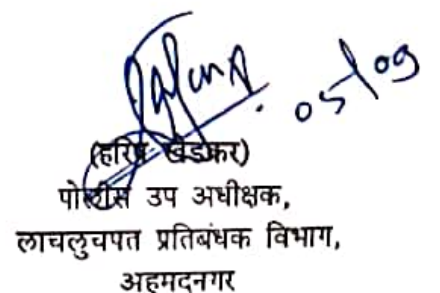 05/09
(हरिष खेडकर)
पोलीस उप अधीक्षक,
लाचलुचपत प्रतिबंधक विभाग,
अहमदनगर